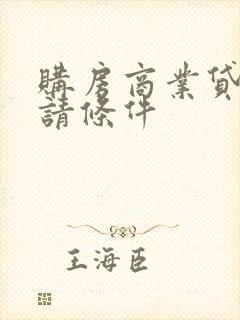 購房商業貸
請條件
王海臣